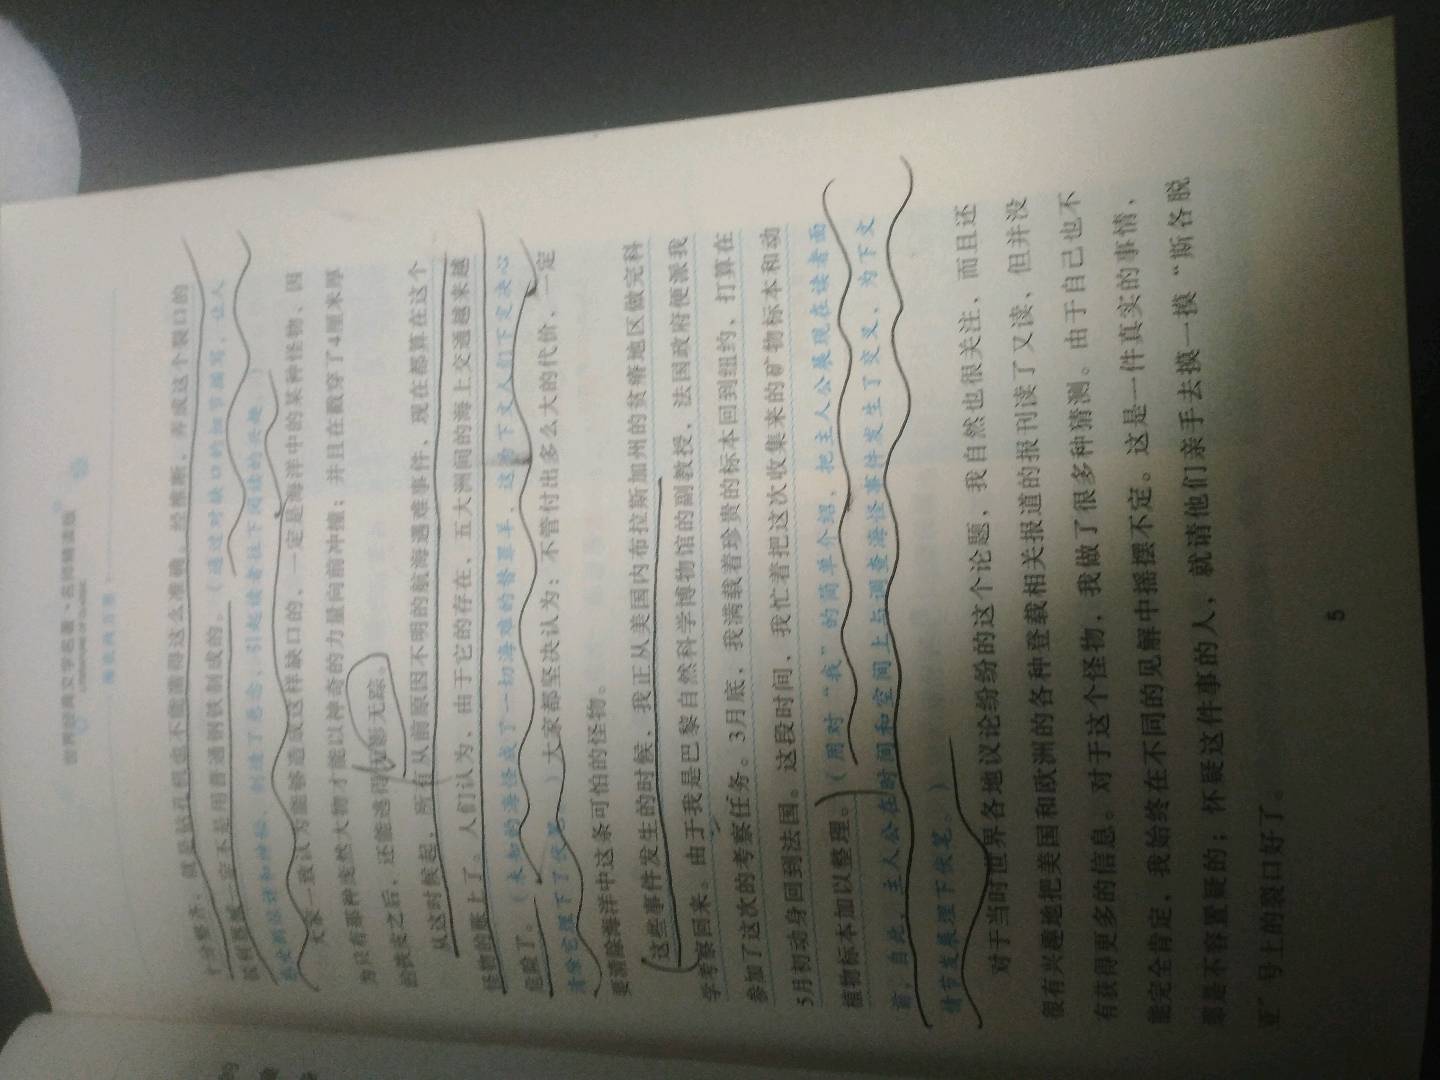 世界经典文学名著·名师精读版
海底两万里
十分整齐，就是钻孔机也不能凿得这么准确。经推断，弄成这个裂口的
锐利器械一定不是用普通钢铁制成的。（通过对缺口的细节描写，让人
感受到惊讶和神秘，制造了悬念，引起读者往下阅读的兴趣。）
大家一致认为能够造成这样缺口的，一定是海洋中的某种怪物，因
为只有那种庞然大物才能以神奇的力量向前冲撞；并且在戳穿了4厘米厚
的铁皮之后，还能逃得无影无踪。
从这时候起，所有从前原因不明的航海遇难事件，现在都算在这个
怪物的账上了。人们认为，由于它的存在，五大洲间的海上交通越来越
危险了。（未知的海怪成了一切海难的替罪羊，这为下文人们下定决心
清除它埋下了伏笔。）大家都坚决认为：不管付出多么大的代价，一定
要清除海洋中这条可怕的怪物。
这些事件发生的时候，我正从美国内布拉斯加州的贫瘠地区做完科
学考察回来。由于我是巴黎自然科学博物馆的副教授，法国政府便派我
参加了这次的考察任务。3月底，我满载着珍贵的标本回到纽约，打算在
5月初动身回到法国。这段时间，我忙着把这次收集来的矿物标本和动
植物标本加以整理。（用对“我”的简单介绍，把主人公展现在读者面
前，自此，主人公在时间和空间上与调查海怪事件发生了交叉，为下文
情节发展埋下伏笔。）
对于当时世界各地议论纷纷的这个论题，我自然也很关注，而且还
很有兴趣地把美国和欧洲的各种登载相关报道的报刊读了又读，但并没
有获得更多的信息。对于这个怪物，我做了很多种猜测。由于自己也不
能完全肯定，我始终在不同的见解中摇摆不定。这是一件真实的事情，
那是不容置疑的；怀疑这件事的人，就请他们亲手去摸一摸“斯各脱
亚”号上的裂口好了。
5